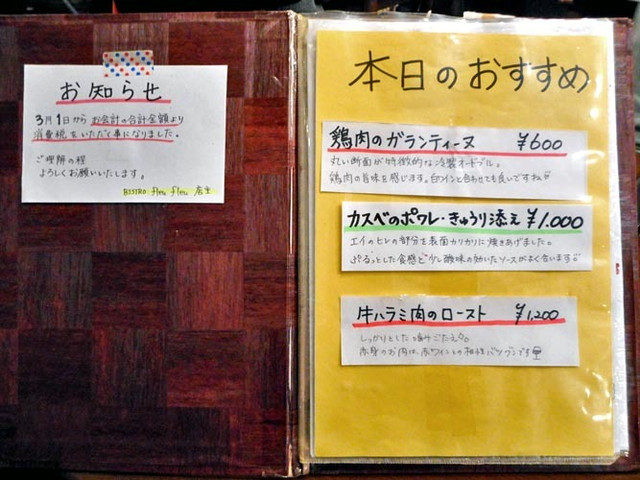 お知らせ
3月1日から お会計の合計金額より
消費税をいただく事になりました。
ご理解の程
よろしくお願いいたします。
BISTRO fleu fleu 店主
本日のおすすめ
鶏肉のガランティーヌ ¥600
丸い断面が特徴的な冷製オードブル。
鶏肉の旨味を感じます。白ワインと合わせても良いですね
カスベのポワレ・きゅうり添え ¥1.000
エイのヒレの部分を表面カリカリに焼きあげました。
ぷるっとした食感と少し酸味の効いたソースがよく合います
牛ハラミ肉のロースト ¥1,200
しっかりとした噛みごたえ。
赤身のお肉は、赤ワインとの相性バツグンです